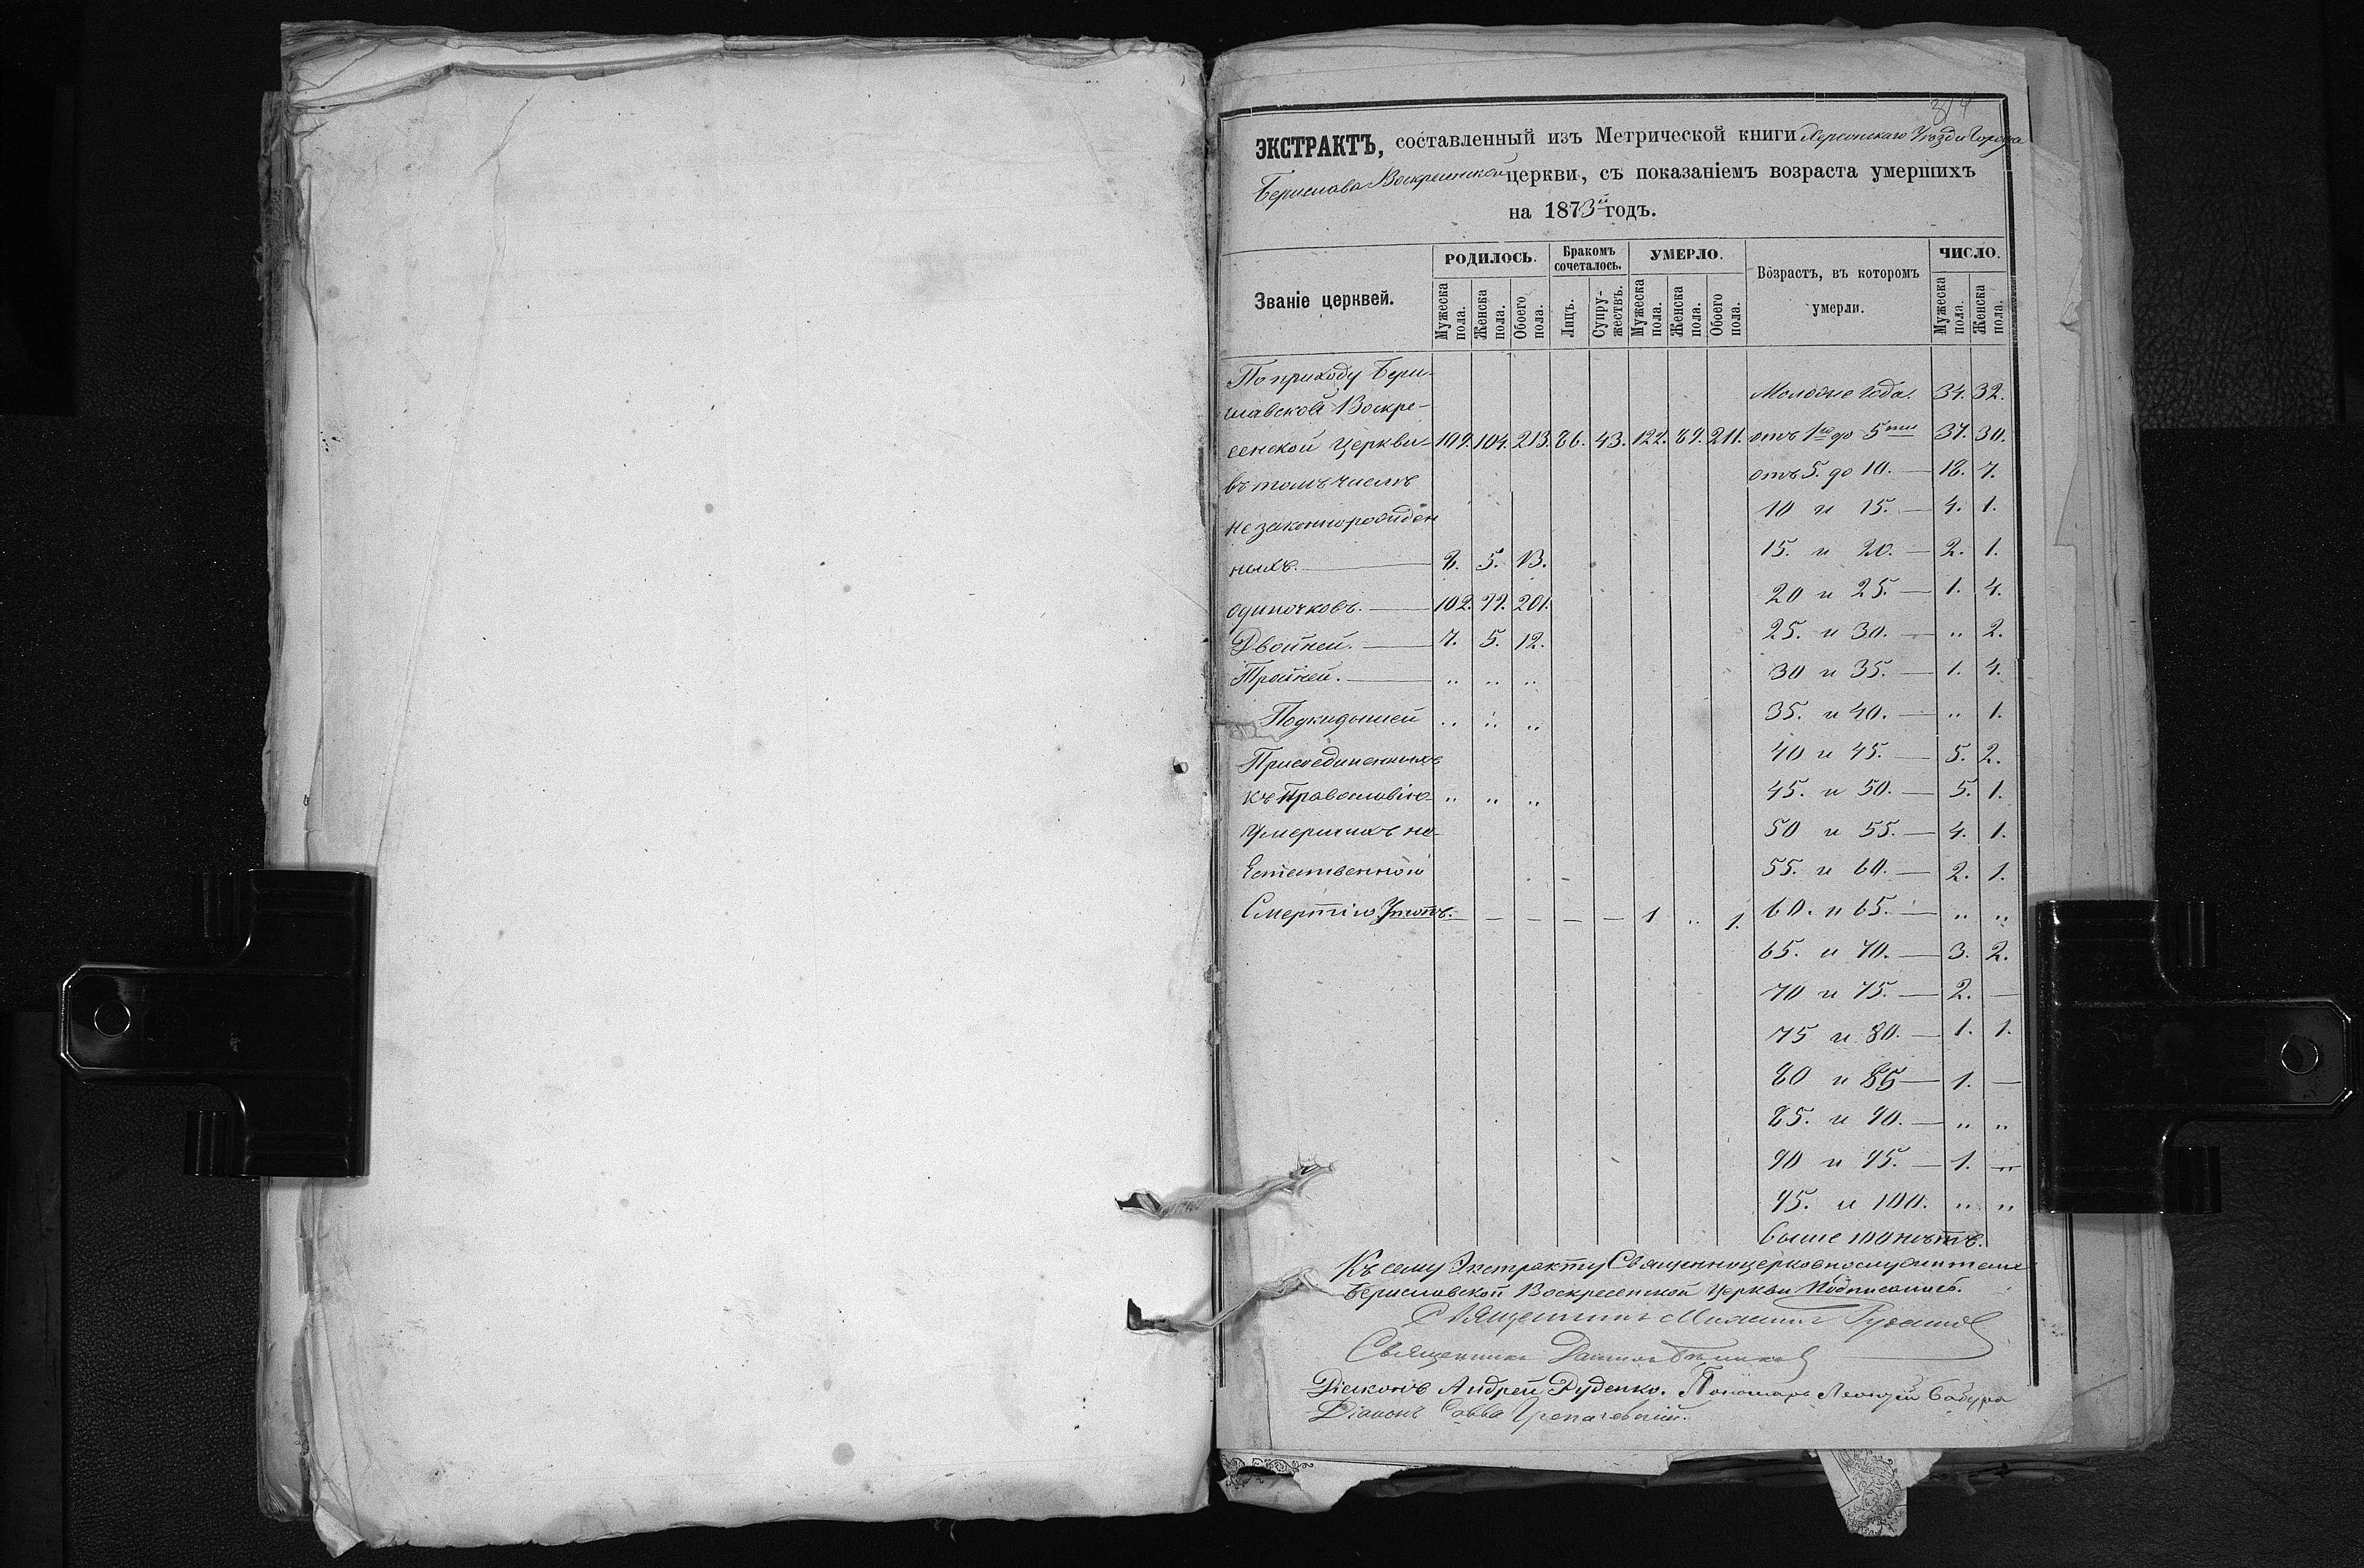 314
ЭКСТРАКТЪ, составленный изъ Метрической книги Херсонскаго Уѣзда Города
Берислава Воскресенской церкви, съ показаніемъ возраста умершихъ
на 1873й годъ.
Званіе церквей. РОДИЛОСЬ. Бракомъ сочеталось. УМЕРЛО. Возрастъ, въ которомъ умерли. ЧИСЛО.
Мужеска пола. Женска пола. Обоего пола. Лицъ. Супружествъ. Мужеска пола. Женска пола. Обоего пола. Мужеска пола. Женска пола.
По приходу Бери-
славской Воскре- Молодые года. 34. 32.
сенской Церкви- 109. 104. 213. 86. 43. 122. 89. 211. отъ 1го до 5ти 37. 30.
въ томъ числѣ отъ 5. до 10. — 18. 7.
не законнорожден 10 и 15. — 4. 1.
ныхъ. — 8. 5. 13. 15. и 20. — 2. 1.
одиночковъ. — 102. 99. 201. 20 и 25. — 1. 4.
Двойней. — 7. 5. 12. 25. и 30. — „ 2.
Тройней. — „ „ „ 30 и 35. — 1. 4.
Подкидышей „ „ „ 35. и 40. — „ 1.
Присоединенныхъ 40 и 45. — 5. 2.
къ Православію „ „ „ 45. и 50. — 5. 1.
Умершихъ не- 50 и 55. — 4. 1.
Естественной 55. и 60. — 2. 1.
Смертію — — — — — 1 „ 1. 60. и 65. — „ „
65. и 70. — 3. 2.
70 и 75. — 2. —
75 и 80. — 1. 1.
80 и 85 — 1. —
85. и 90. — „ „
90 и 95. — 1. „
95. и 100. „ „
выше 100 нѣтъ.
Къ сему Экстракту Священноцерковнослужители
Бериславской Воскресенской Церкви Подписались.
Священникъ
Священникъ Даниилъ
Діаконъ Андрей Руденко. Пономарь Бабура
Діаконъ Савва